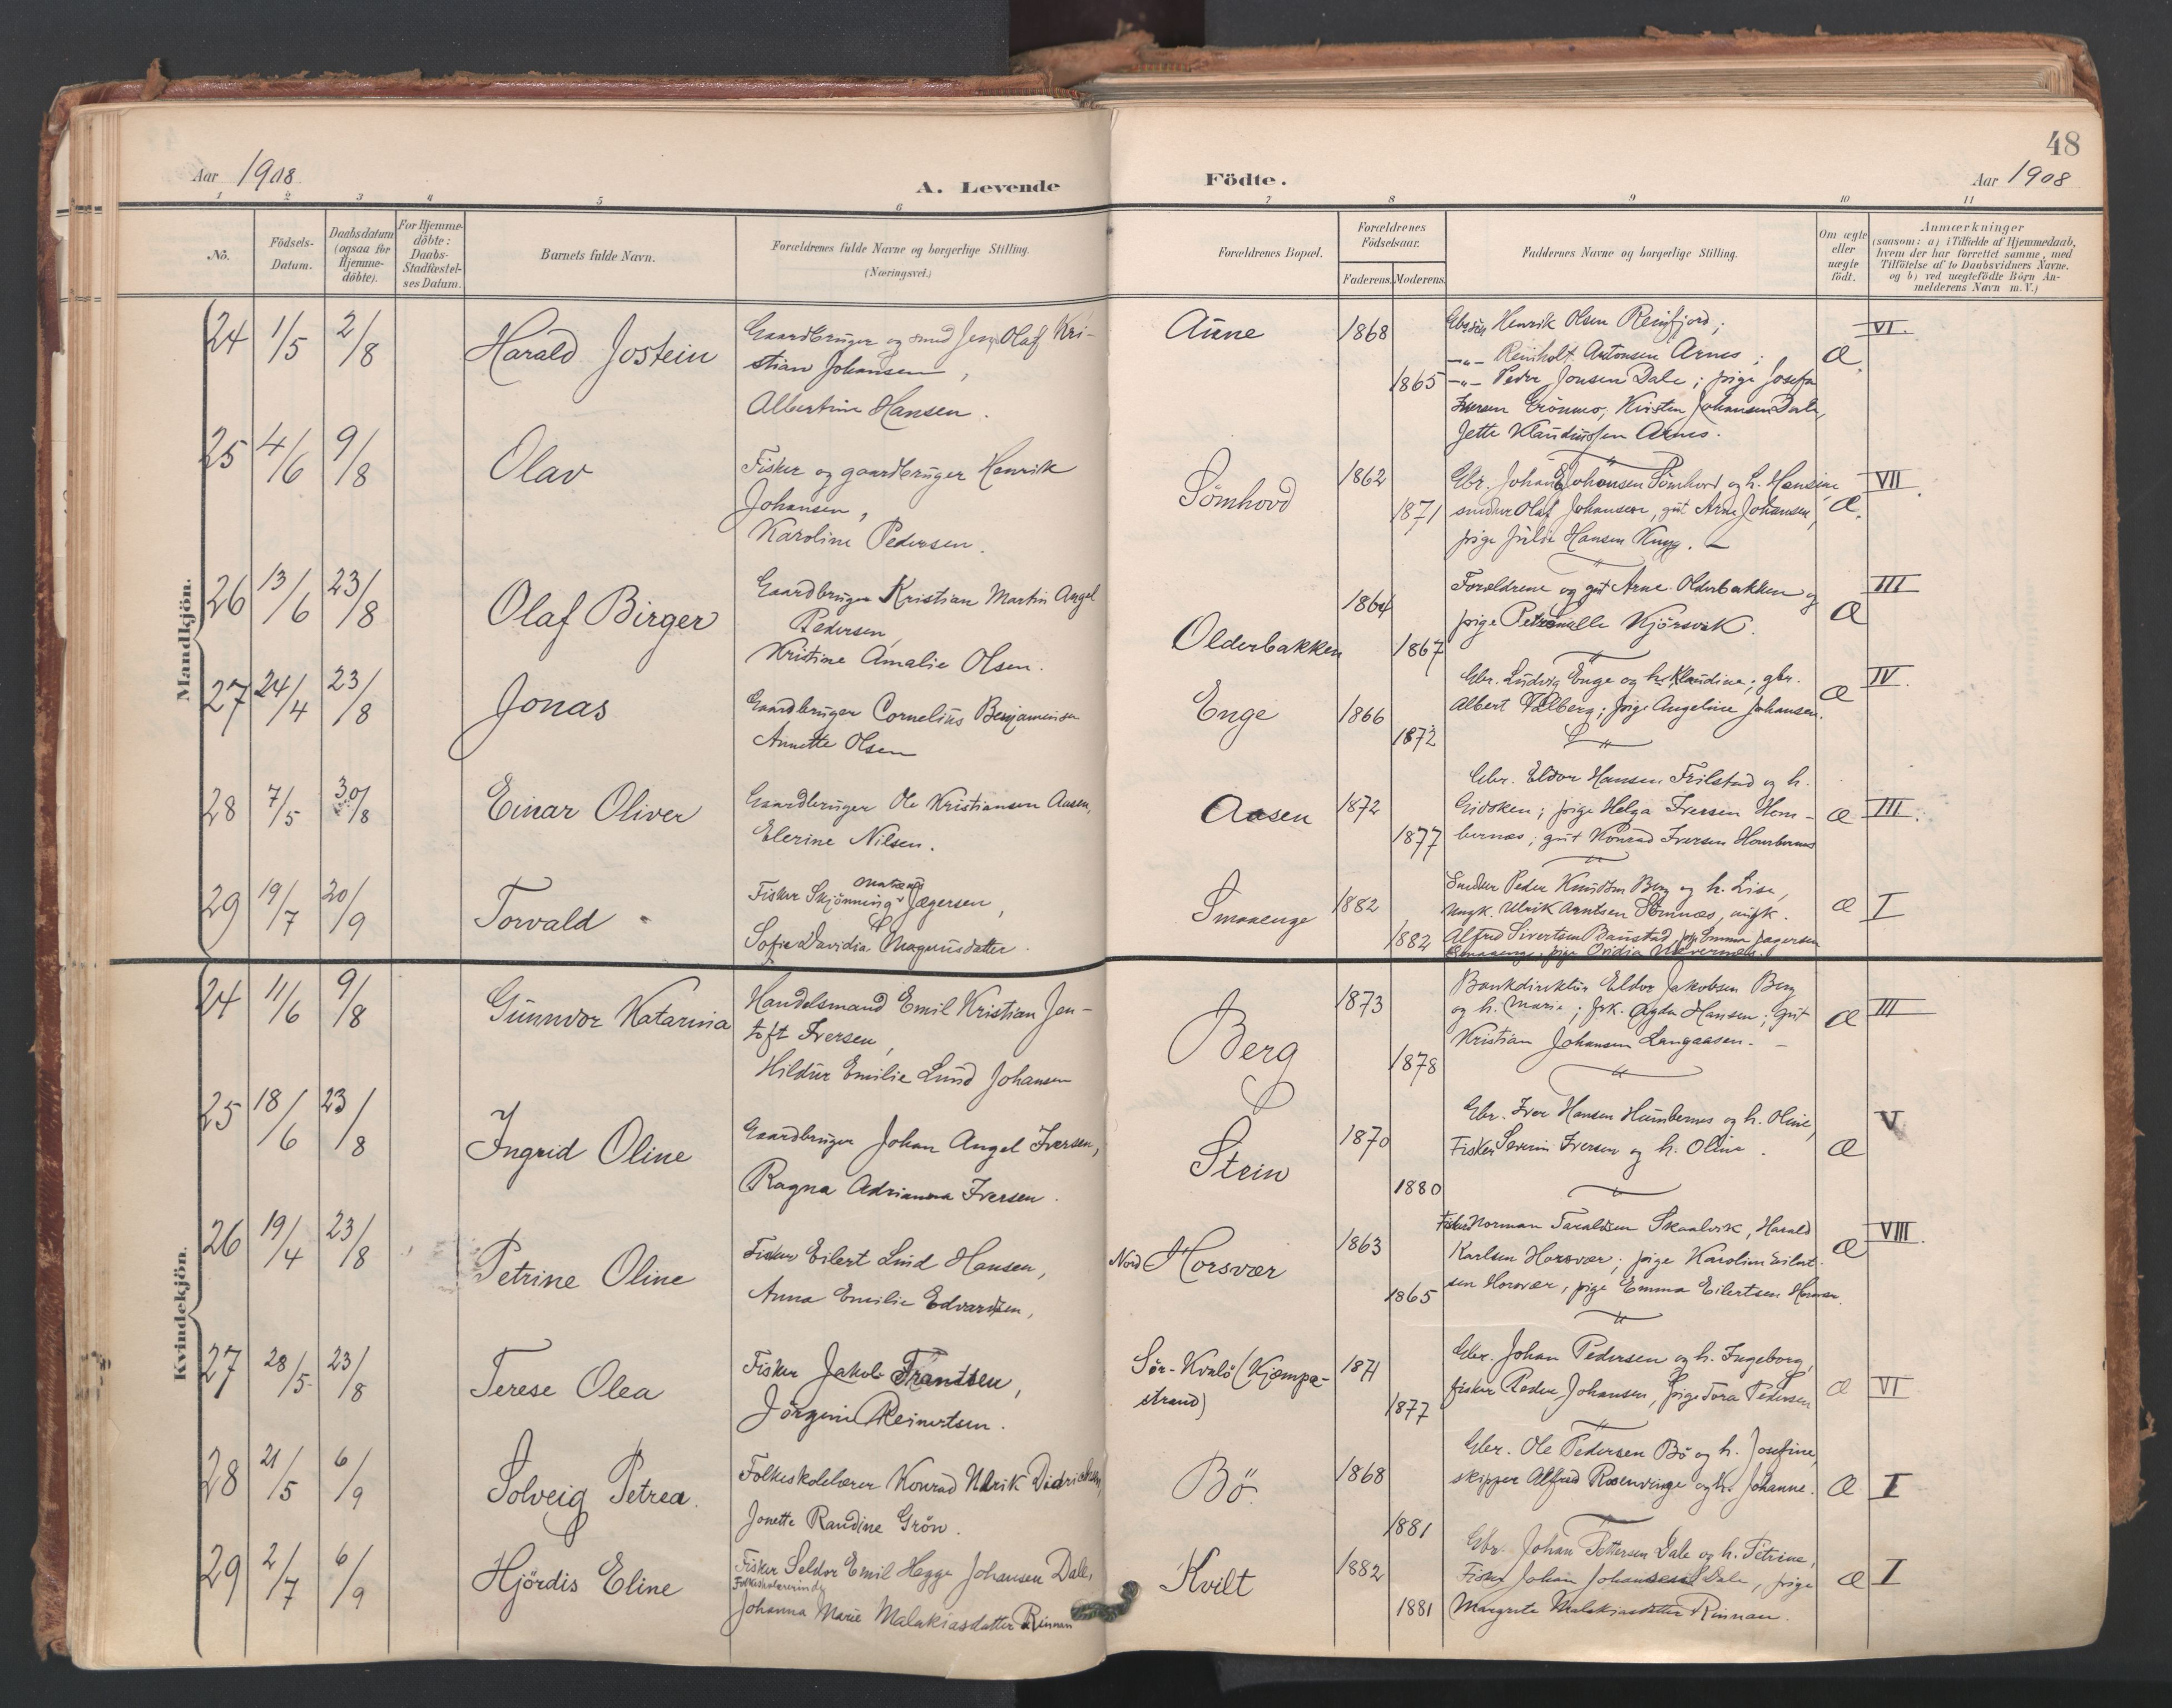 Aar 1908
A. Levende
Födte.
48
Aar 1908
1 2 3 4 5 6 7 8 9 10 11
No.
Födsels-
Datum.
Daabsdatum
(ogsaa for
Hjemme-
döbte).
For Hjemme-
döbte:
Daabs-
Stadfæstel-
ses Datum.
Barnets fulde Navn.
Forældrenes fulde Navne og borgerlige Stilling.
(Næringsvei.)
Forældrenes Bopæl.
Forældrenes
Födselsaar.
Faderens. Moderens.
Faddernes Navne og borgerlige Stilling.
Om ægte
eller
uægte
födt.
Anmærkninger
(saasom: a) i Tilfælde af Hjemmedaab,
hvem der har forrettet samme, med
Tilföielse af to Daabsvidners Navne.
og b) ved uægtefödte Börn An-
melderens Navn m. V.)
Mandkjön.
24 1/5 2/8
Harald Jostein
Gaardbruger og smed Jens Olaf Kri-
stian Johansen,
Albertine Hansen.
Aune
1868
1865
Henrik Olsen Reinfjord;
-"- Reinholt Antonsen Arnes;
-"- Peder Jonsen Dale; pige Josefa
Iversen Grönmo, Kirsten Johansen Dale,
Jette Klaudiussen Arnes.
Æ.
VI.
25 4/6 9/8
Olav
Fisker og gaardbruger Henrik
Johansen,
Karoline Pedersen.
Sömhovd
1862
1871
Gbr. Johan Johansen Sömhovd og h. Hansine,
Olaf Johansen, gut Arne Johansen,
pige Julie Hansen
Æ.
VII.
26 13/6 23/8
Olaf Birger
Gaardbruger Kristian Martin Angel
Pedersen,
Kristine Amalie Olsen.
Olderbakken
1864
1867
Forældrene og gut Arne Olderbakken og
pige Petronelle Kjörsvik.
Æ
III
27 24/4 23/8
Jonas
Gaardbruger Cornelius Benjaminsen
Annette Olsen
Enge
1866
1872
Gbr. Ludvig Enge og h. Klaudine; gbr.
Albert Valberg; pige Angeline Johansen.
Æ
IV.
28 7/5 30/8
Einar Oliver
Gaardbruger Ole Kristiansen Aasen,
Elerine Nilsen.
Aasen
1872
1877
Gbr. Eldor Hansen Frilstad og h.
Gidsken; pige Helga Iversen Hom-
bernes; gut Konrad Iversen Hombernes
Æ
III.
29 19/7 20/9
Torvald
Fisker Skjönning Jægersen,
Sofie Davidia Magnusdatter.
Smaaenge
1882
1882
Snedker Peder Knudsen Berg og h. Lise,
Ungk. Ulrik Arntsen Sömnæs, ungk.
Alfred Sivertsen Baustad, pige Emma Jægersen
Smaaenge, pige Ovidia
Æ
I
Kvindekjön.
24 11/6 9/8
Gunnvor Katarina
Handelsmand Emil Kristian Jen-
toft Iversen,
Hildur Emilie Lund Johansen
Berg
1873
1878
Bankdirektör Eldor Jakobsen Berg
og h. Marie; frk. Agda Hansen; gut
Kristian Johansen Langaasen.
Æ
III
25 18/6 23/8
Ingrid Oline
Gaardbruger Johan Angel Iversen,
Ragna Adrianna Iversen.
Stein
1870
1880
Gbr. Iver Hansen Humbernes og h. Oline,
Fisker Severin Iversen og h. Oline.
Æ
V
26 19/4 23/8
Petrine Oline
Fisker Eilert Lind Hansen,
Anna Emilie Edvardsen,
Nord Horsvær
1863
1865
Fisker Norman Taraldsen Skaalvik, Harald
Karlsen Horsvær; pige Karoline Eilert-
sen Horsvær, pige Emma Eilertsen Horsvær.
Æ
VIII.
27 28/5 23/8
Terese Olea
Fisker Jakob Frantsen,
Jörgine Reinertsen.
Sör-Kvalö (Kjempe-
strand)
1871
1877
Gbr. Johan Pedersen og h. Ingeborg,
fisker Peder Johansen, pige Tora Pedersen
Æ
VI
28 21/5 6/9
Solveig Petrea.
Folkeskolelærer Konrad Ulrik Didriksen,
Jonette Randine Grön.
Bö
1868
1881
Gbr. Ole Pedersen Bö og h. Josefine,
skipper Alfred Rosenvinge og h. Johanne.
Æ
I
29 2/7 6/9
Hjördis Eline
Fisker Seldor Emil Hegge Johansen Dale,
Folkeskolelærerinde
Johanna Marie Malakiasdatter Rinnan
Kvilt
1882
1881
Gbr. Johan Pettersen Dale og h. Petrine,
Fisker Johan Johansen Dale, pige
Margrete Malakiasdatter Rinnan.
Æ
I